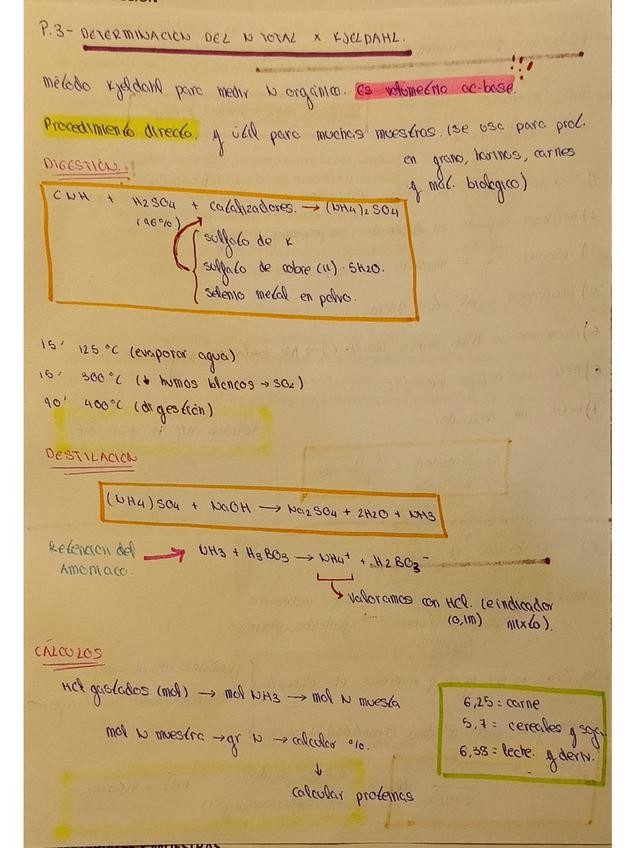 P.3- DETERMINACIÓN DEL N TOTAL X KJELDAHL.
método Kjeldahl para medir N orgánico. Es volumetría ac-base.
Procedimiento directo. y útil para muchas muestras. (se usa para prot.
en grano, harinas, carnes
y mat. biológico)
DIGESTIÓN:
CNH + H2SO4 + catalizadores. → (NH4)2SO4
(96%)
sulfato de K
sulfato de cobre (II) · 5H2O.
selenio metal en polvo.
15' 125 °C (evaporar agua)
15' 300 °C (↓ humos blancos → SO2)
90' 400°C (digestión)
DESTILACIÓN
(NH4)SO4 + NaOH → Na2SO4 + 2H2O + NH3
Retención del
Amoniaco.
NH3 + H3BO3 → NH4+ + H2BO3-
valoramos con HCl. (e indicador
(0,1M) mixto).
CÁLCULOS
HCl gastados (mol) → mol NH3 → mol N muesta
mol N muestra → gr N → calcular %.
↓
calcular proteinas
6,25 = carne
5,7 = cereales y soja.
6,38 = leche y deriv.